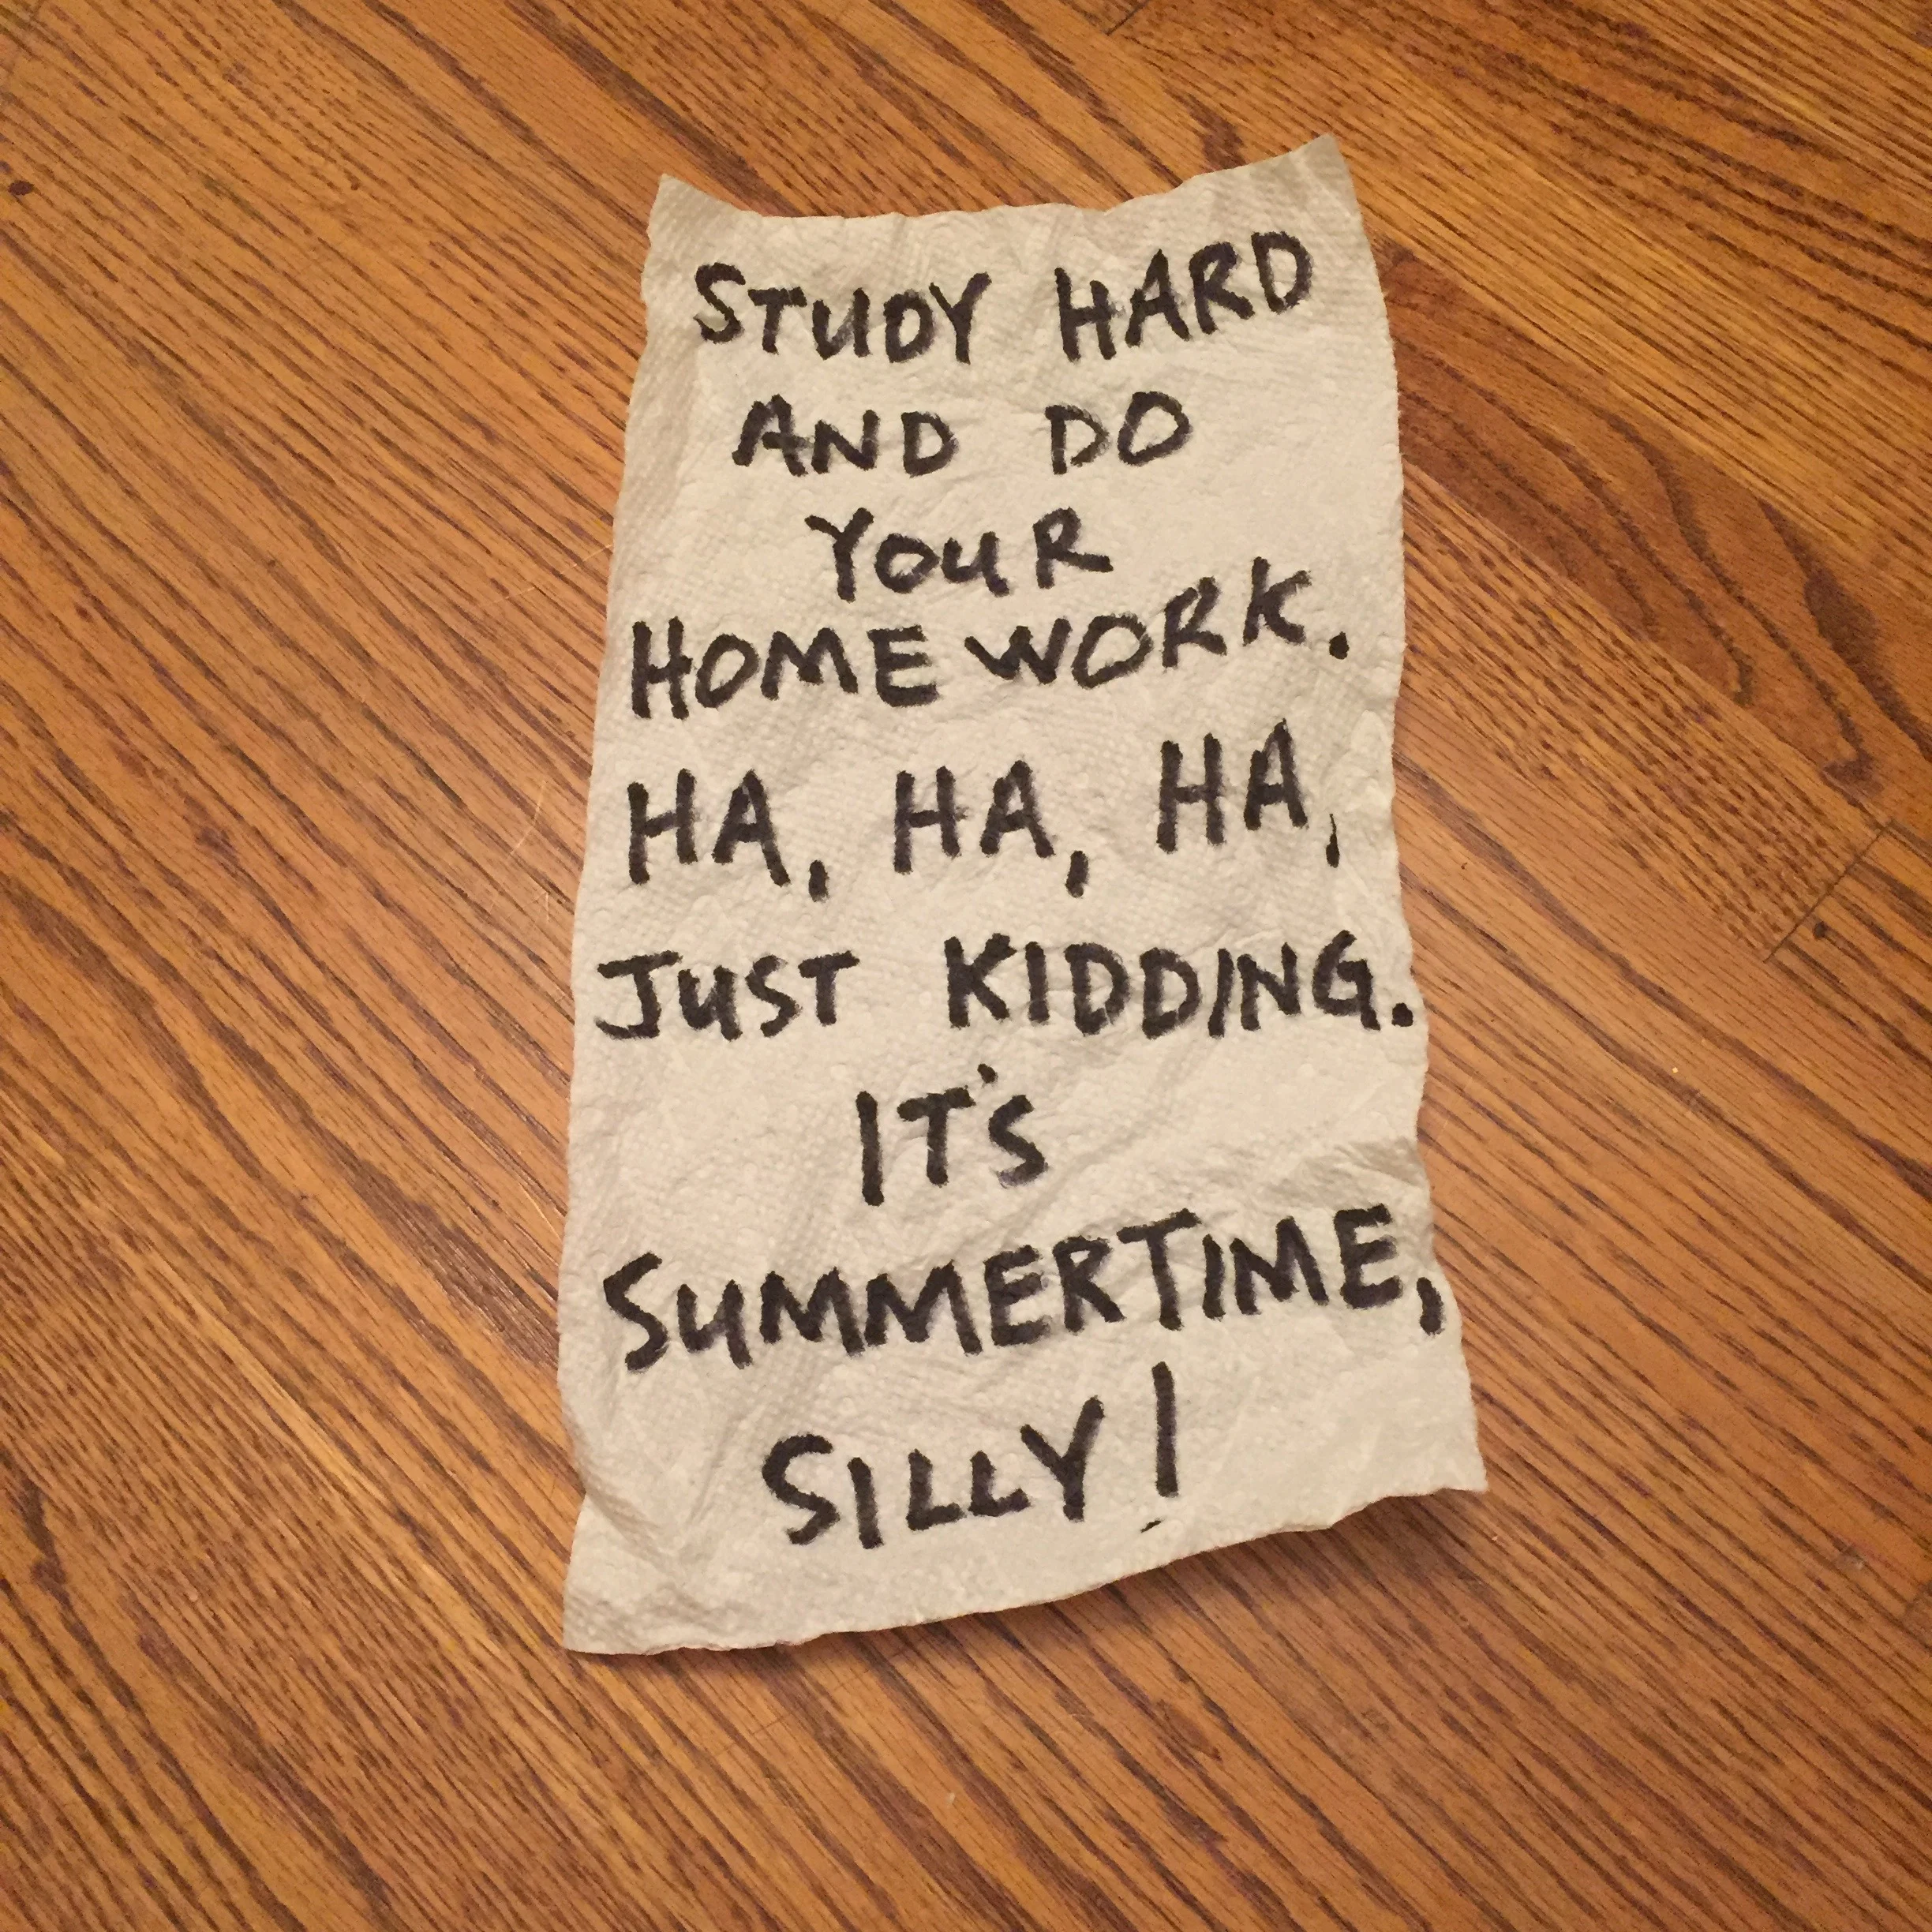 STUDY HARD
AND DO
YOUR
HOMEWORK.
HA, HA, HA,
JUST KIDDING.
IT'S
SUMMERTIME,
SILLY!